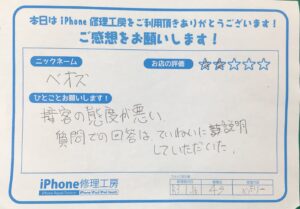 本日はiPhone修理工房をご利用頂きありがとうございます!
ご感想をお願いします!
ニックネーム
お店の評価 ☆☆☆☆☆
ベオズ
ひとことお願いします!
接客の態度が悪い。
質問での回答はていねいに説明
していただいた。
iPhone修理工房